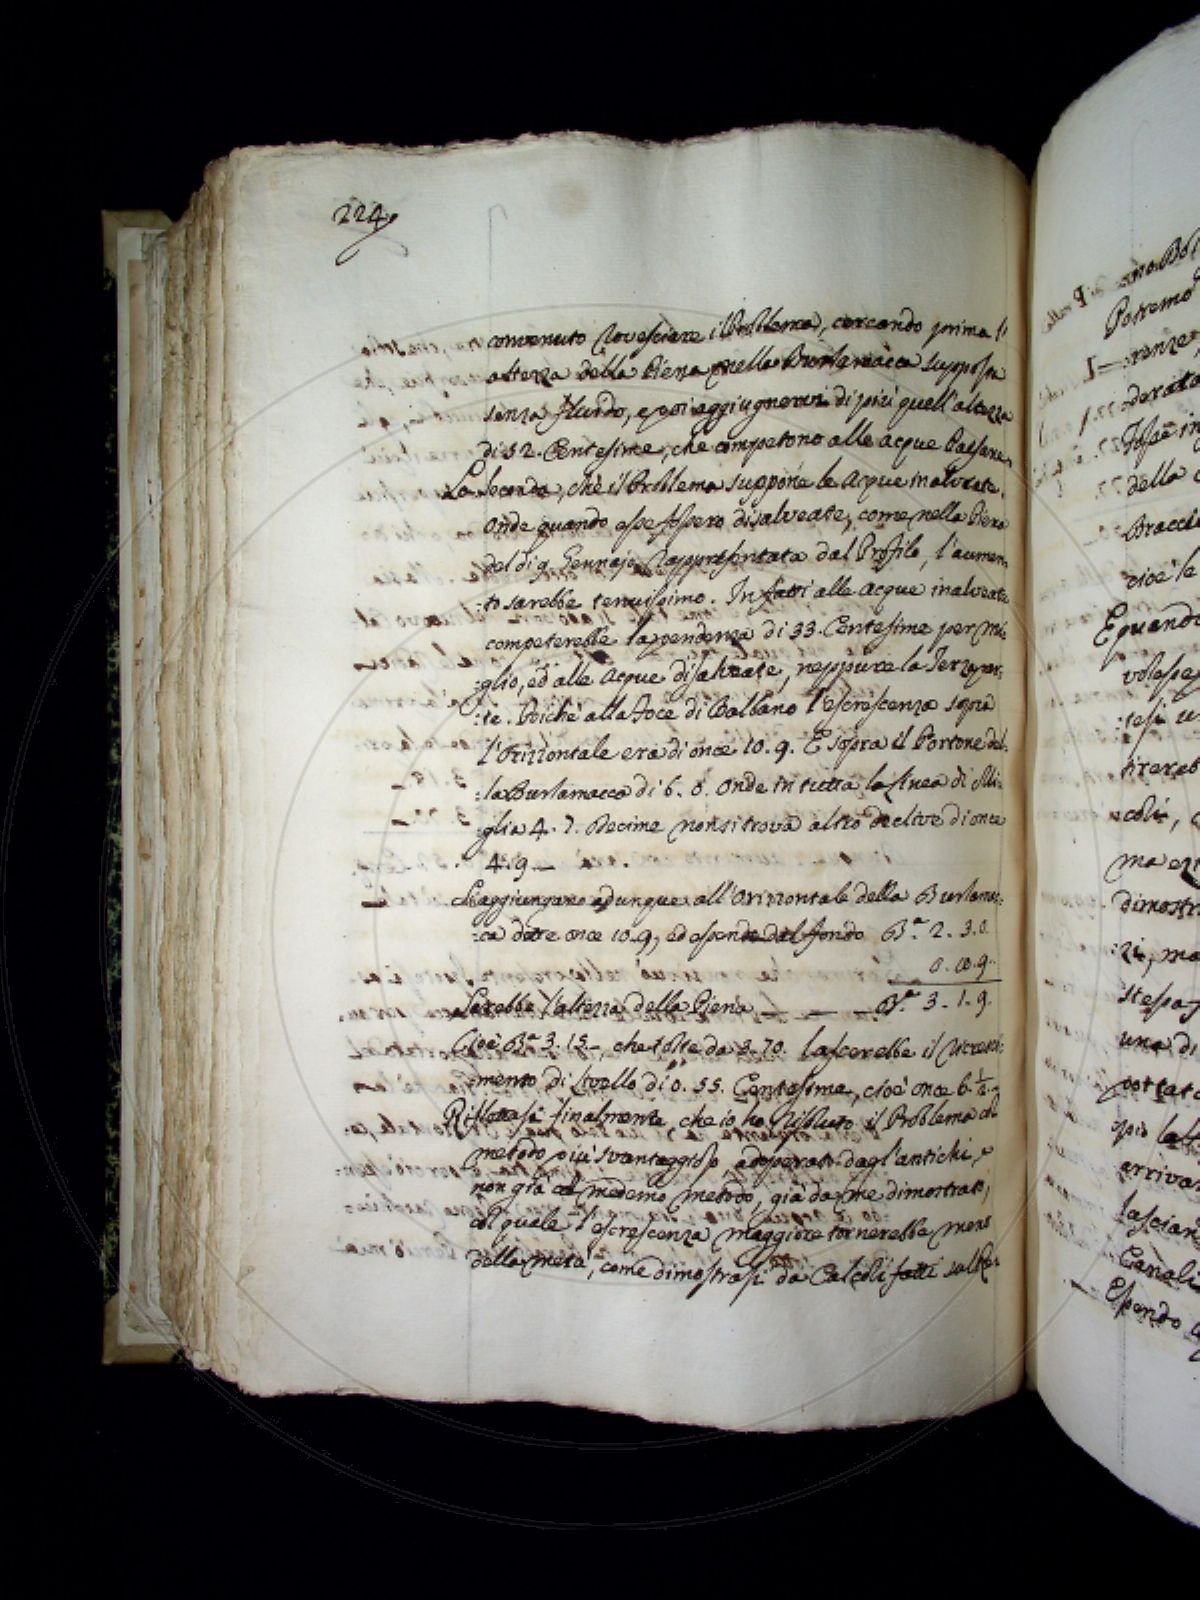 224
convenuto rovesciare il Problema, cercando prima l'
altezza della Piena nella Burlamacca supposta
senza fluido, e poi aggiugnervi di più quell'altezza
di 52. Centesime, che competono alle acque Paesane.
La seconda, chè il Problema suppone le acque inalveate.
Onde quando esse fossero disalveate, come nella Piena
del dì 9. Gennajo rappresentata dal Profilo, l'aumen:
:to sarebbe tenuissimo. In fatti alle acque inalveate
competerebbe la pendenza di 33. Centesime per mi:
:glio, ed alle acque disalveate, neppure la Terza par:
:te. Poichè alla foce di Balbano l'escrescenza sopra
l'Orizzontale era di once 10.9. E sopra il Portone del:
:la Burlamacca di 6.0. Onde in tutta la linea di Mi:
:glia 4.7. Decime non si trova altro declive di once
4.9
Si aggiungano adunque all'Orizzontale della Burlamac:
:ca dette once 10.9, ed essendo dal fondo Bª 2. 3.0.
0.10.9.
Sarebbe l'altezza della Piena Bª 3.1.9.
Cioè Bª 3.15, che tolte da 3.70. lascerebbe il ricresci:
:mento di livello di 0.55. Centesime, cioè once 6.½
Riflettasi finalmente, che io ho risoluto il Problema col
metodo più svantaggioso, adoperato dagl'antichi, e
non già col medemo metodo, già da me dimostrato,
col quale l'escrescenza maggiore tornerebbe meno
della metà, come dimostrasi da Calcoli fatti
ano
Potremo
renze,
oderato
fosse in
della
Braccia
cioè le
E quando
coli,
ma
dimostr
zi, ma
stessa
una di
portata
arrivar
lascian
Canali
Essendo